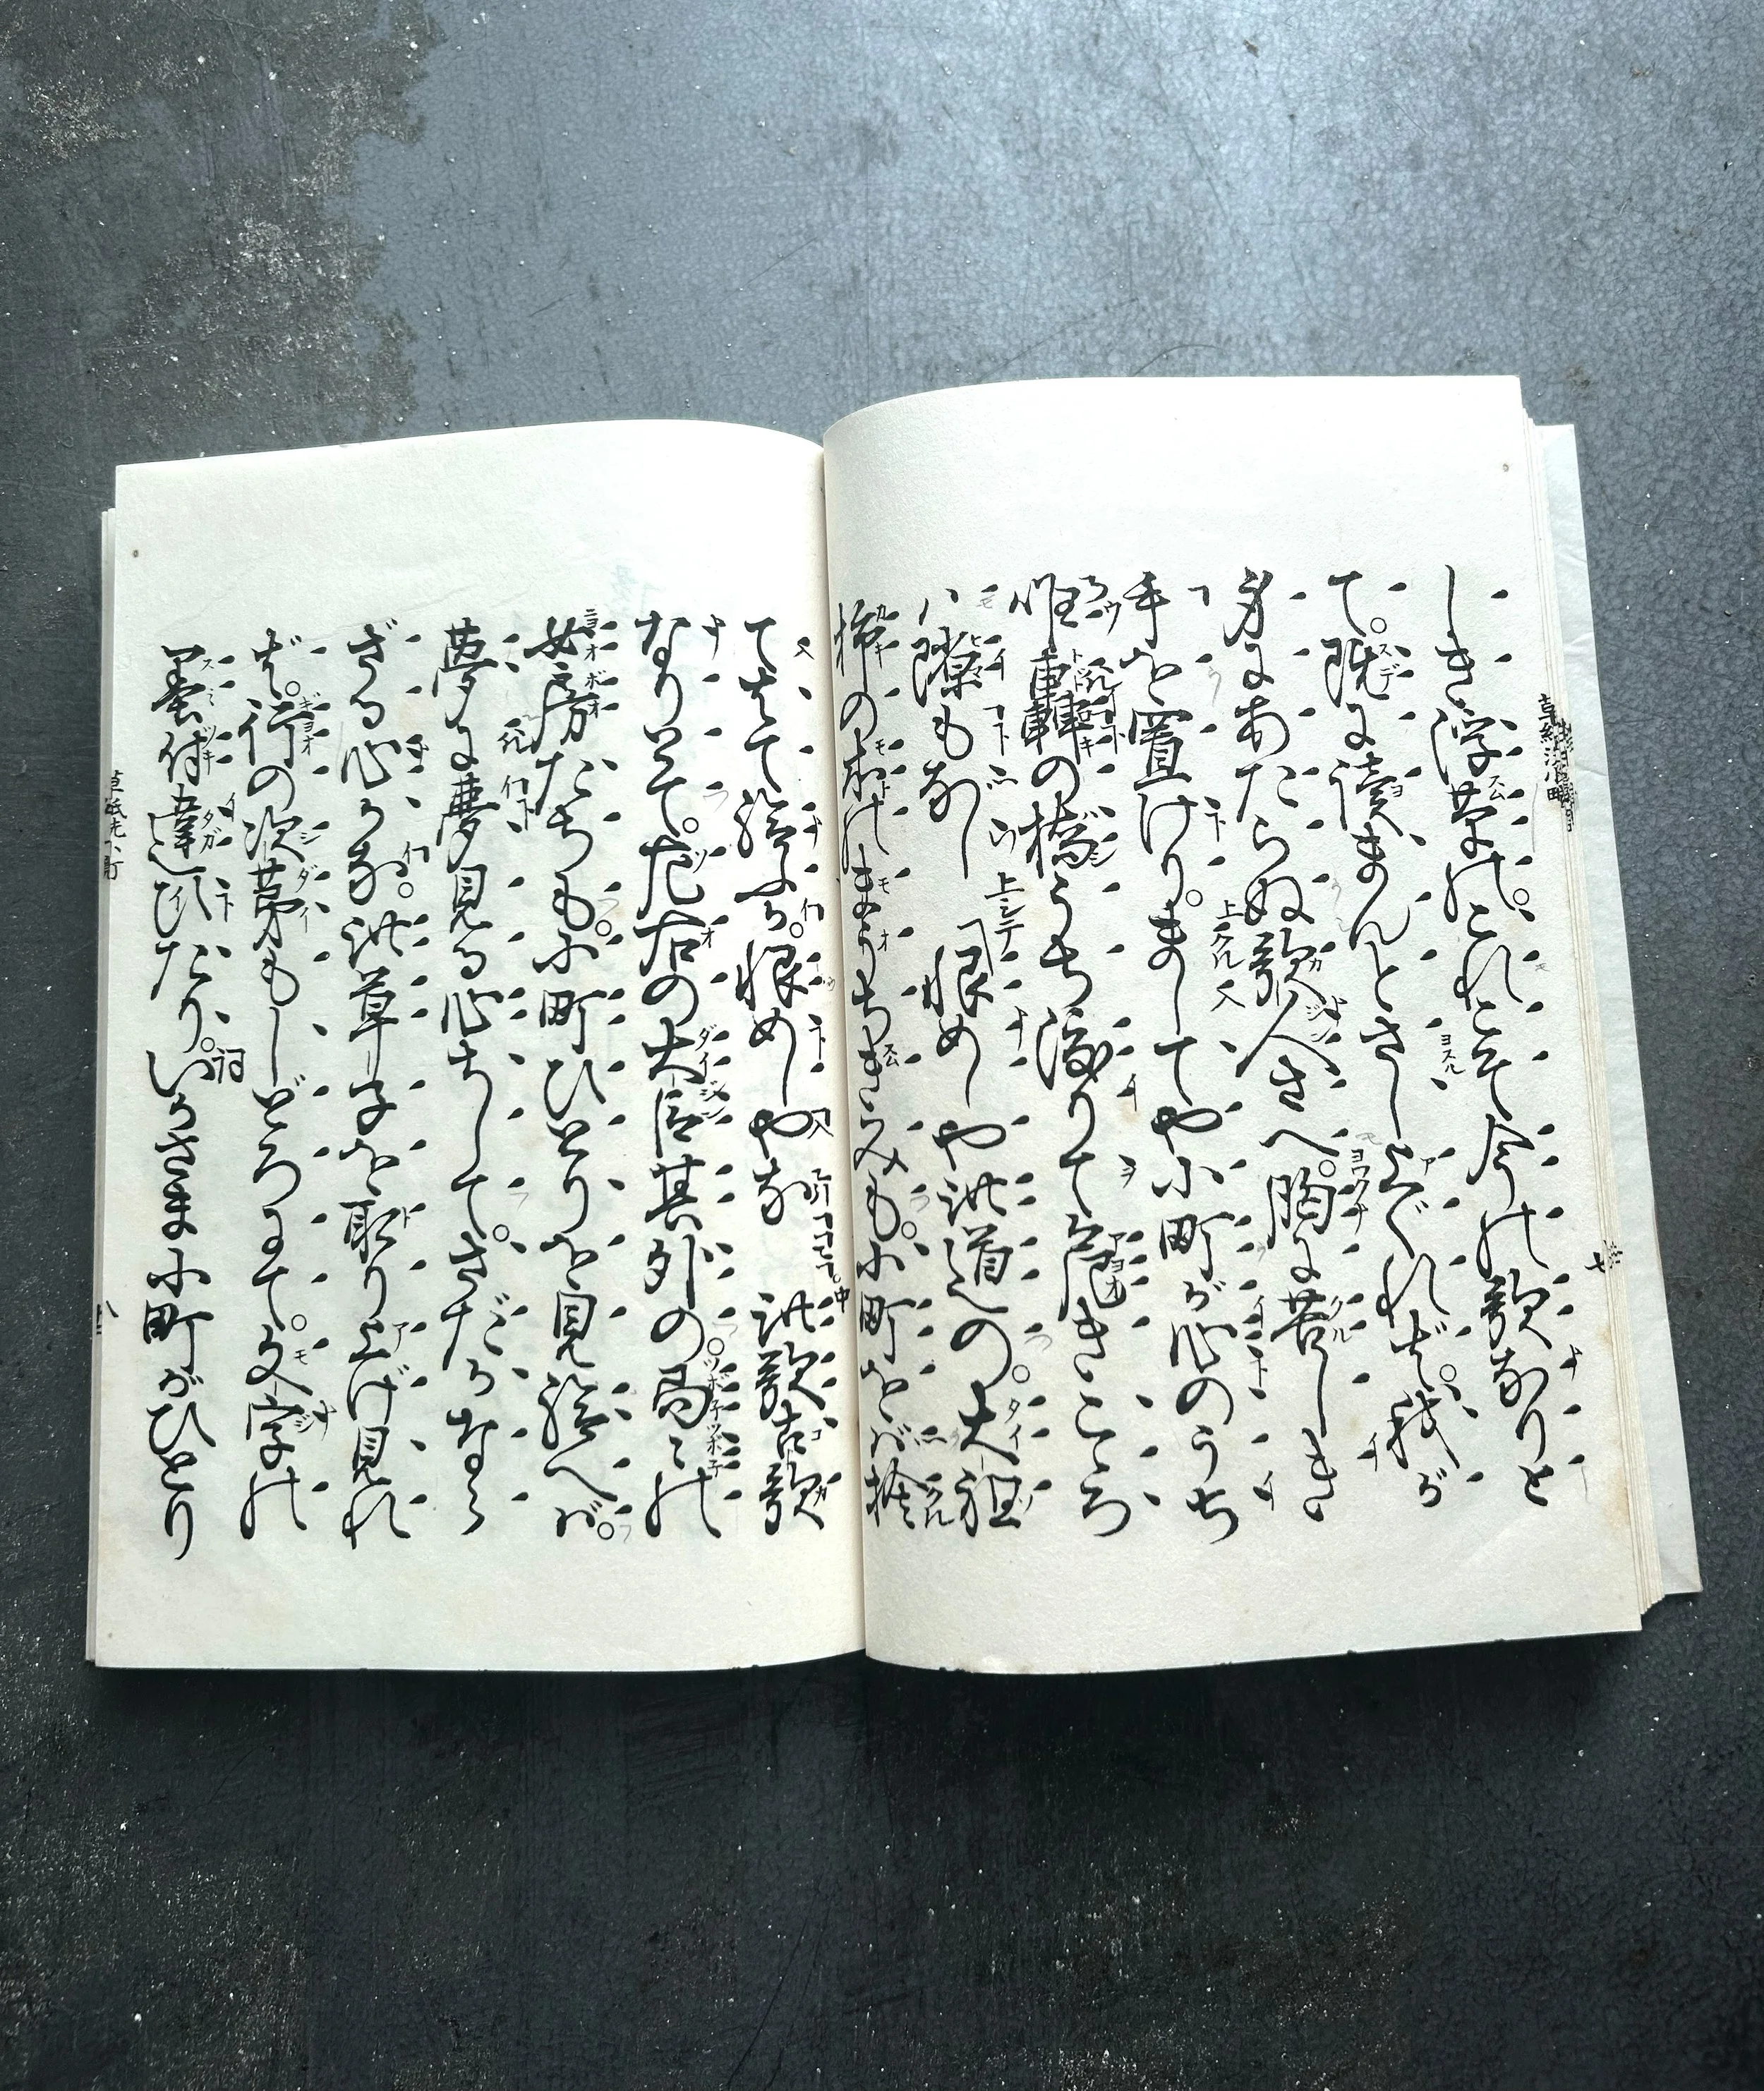 しき浮草の。これこそ今の歌なりと
て。既に讀まんとさし上ぐれば。我が
身にあたらぬ歌人さへ。胸に苦しき
手を置けり。ましてや小町が心のうち
唯轟の橋うち渡りて危きこころ
は隙もなし 恨めしや此道の。大祖
柿の本のまうちきみも。小町をば捨
てはて給ふか。恨めしやな 此歌古歌
なりとて。左右の大臣其外の。局々の
女房たちも。小町ひとりを見給へば。
夢に夢見る心ちして。さだかなら
ざる心かな。此草子を取り上げ見れ
ば。行の次第もしどろにて。文字の
墨付違ひたり。いかさま小町がひとり
草紙洗小町
八
七